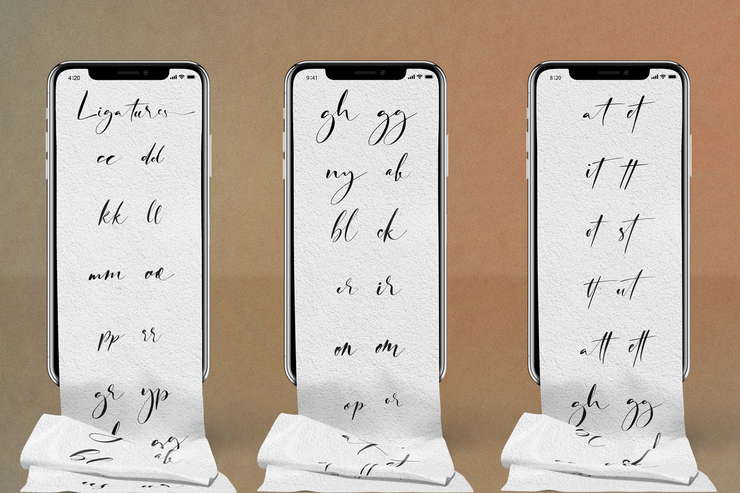 4:20
Ligatures
cc dd
kk ll
mm oo
pp rr
gr yp
9:41
gh gg
ny ab
bl ck
er ir
on om
op or
8:20
at et
it tt
ot st
tt ut
att ett
gh gg